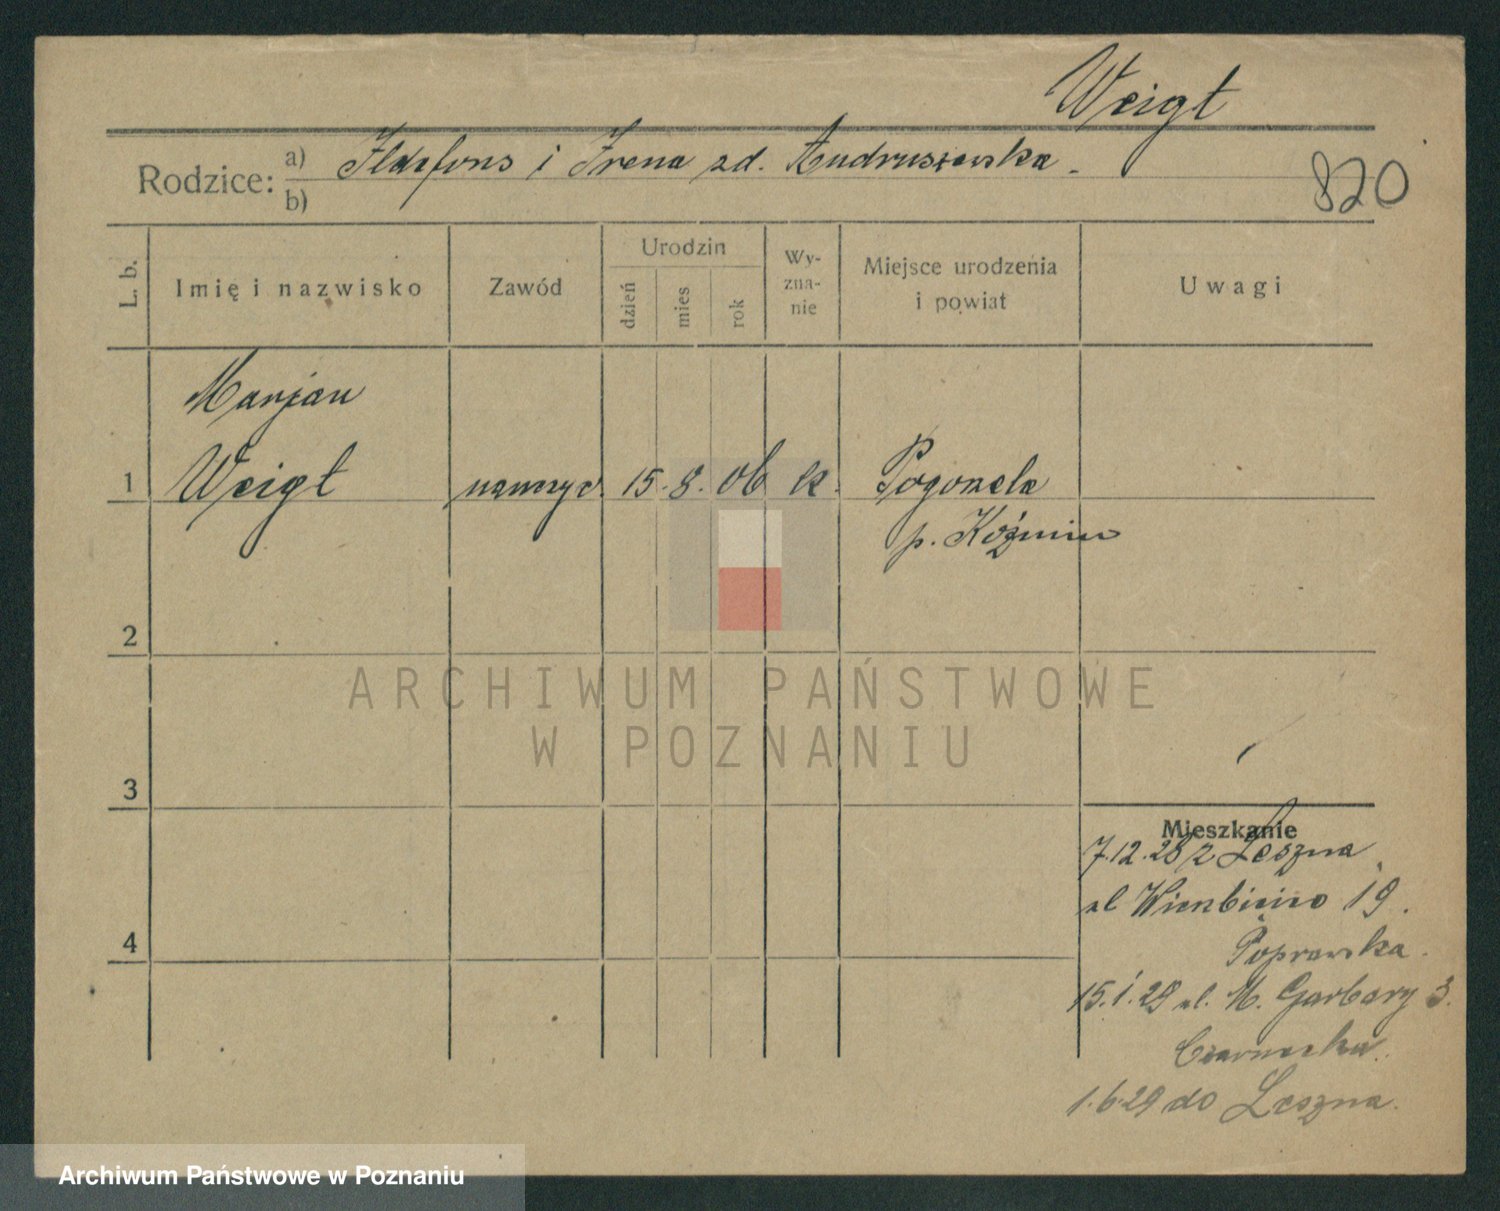 Weigt
Rodzice: a) Ildefons i Irena zd. Andruszewska.
b)
820
L. b.
Imię i nazwisko
Zawód
Urodzin
dzień
mies
rok
Wy-
zna-
nie
Miejsce urodzenia
i powiat
Uwagi
Marjan
1 Weigt nauczyc. 15. 8. 06 k. Pogorzela
p. Koźmin
2
ARCHIWUM PAŃSTWOWE
W POZNANIU
3
Mieszkanie
7.12.28 z Leszna
ul 19.
Poprawska.
15.1.29 ul. M. Garbary 3.
Czarnecka.
4
1.6.29 do Leszna.
Archiwum Państwowe w Poznaniu